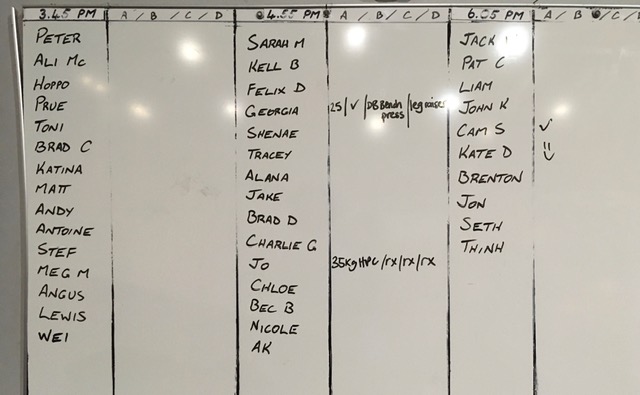 3.45 PM A / B / C / D
PETER
ALI Mc
HOPPO
PRUE
TONI
BRAD C
KATINA
MATT
ANDY
ANTOINE
STEF
MEG M
ANGUS
LEWIS
WEI
4.55 PM A / B / C / D
SARAH M
KELL B
FELIX D
GEORGIA 25 / ✓ / DB Bench press / leg raises
SHENAE
TRACEY
ALANA
JAKE
BRAD D
CHARLIE G
JO 35kg HPC / rx / rx / rx
CHLOE
BEC B
NICOLE
AK
6.05 PM A / B / C / D
JACK
PAT C
LIAM
JOHN K
CAM S ✓
KATE D
BRENTON
JON
SETH
THINH